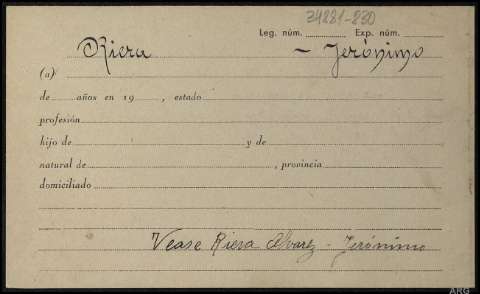 34881-830
Leg. núm. Exp. núm.
Riera - Jerónimo
(a)
de años en 19 , estado
profesión
hijo de y de
natural de , provincia
domiciliado
Vease Riera Alvarez - Jerónimo
ARG